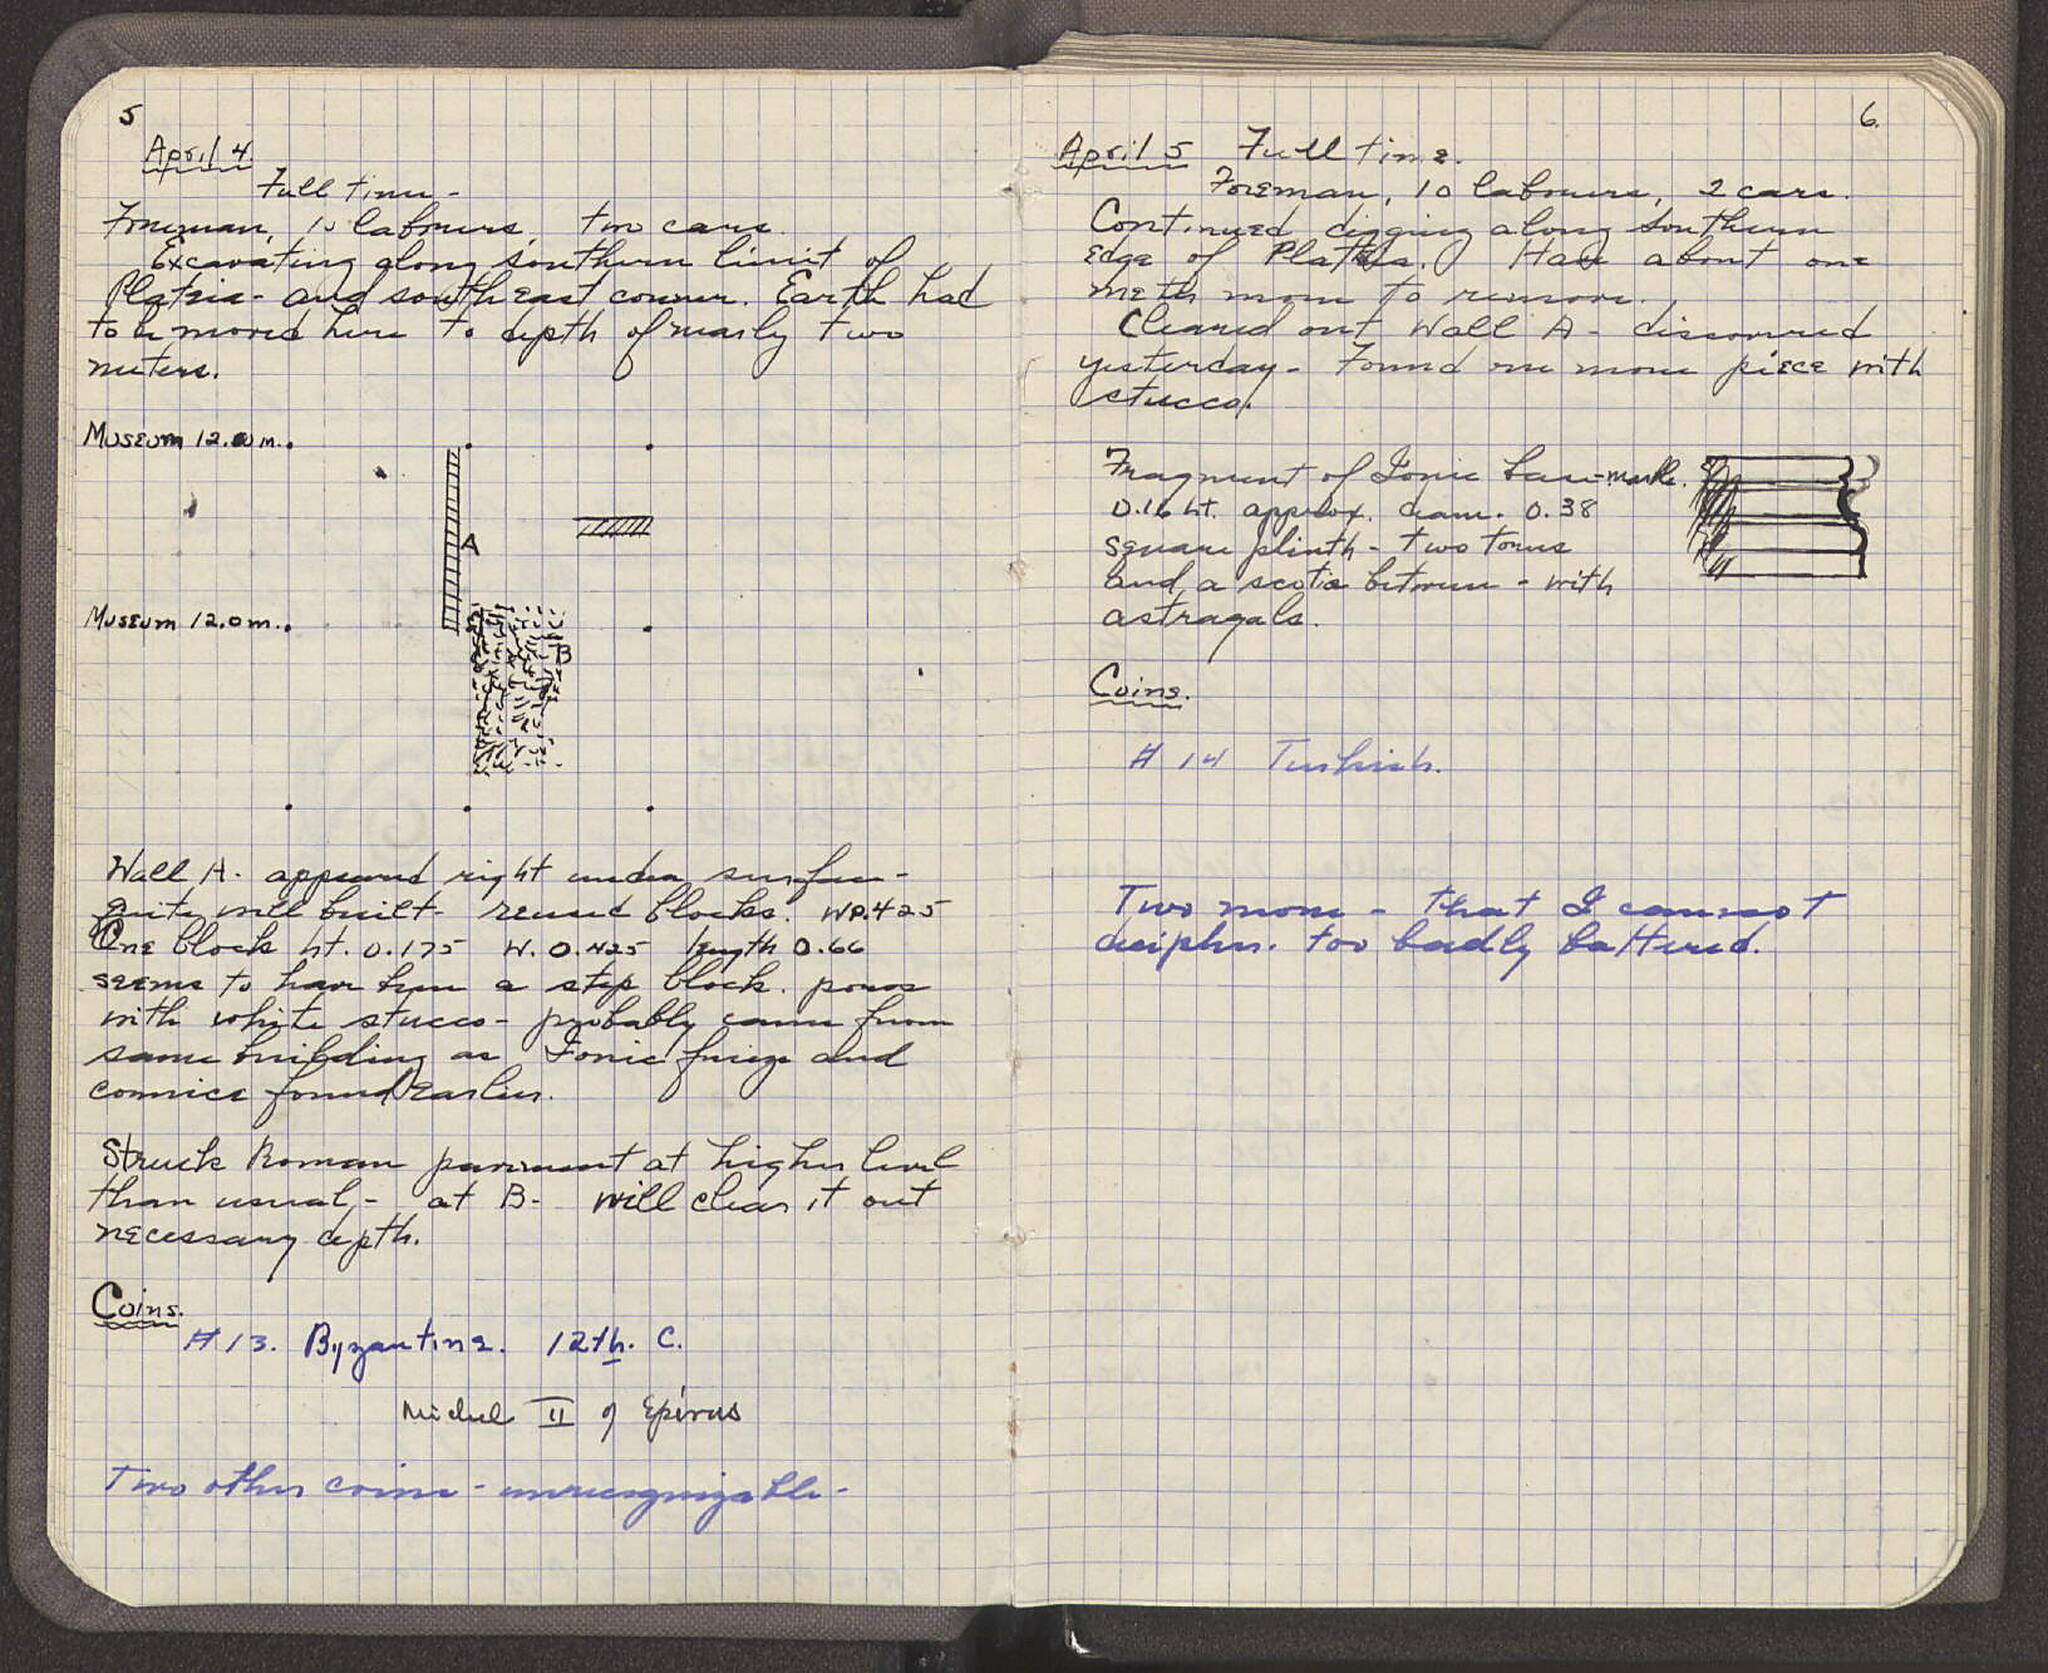 5
April 4.
Full time -
Foreman, 10 labourers, two cars.
Excavating along southern limit of
Plateia - and southeast corner. Earth had
to be moved here to depth of nearly two
meters.
Museum 12.0m.
A
Museum 12.0m.
B
Wall A. appeared right under surface -
quite well built - reused blocks. W 0.425
One block ht. 0.175 W. 0.425 length 0.66
seems to have been a step block. poros
with white stucco - probably came from
same building as Ionic frieze and
cornice found earlier.
Struck Roman pavement at higher level
than usual, - at B - will clear it out
necessary depth.
Coins.
#13. Byzantine. 12th. C.
Michael II of Epirus
Two other coins - unrecognizable -
6.
April 5 Full time.
Foreman, 10 labourers, 2 cars.
Continued digging along southern
edge of Plateia. Have about one
meter more to remove.
Cleared out Wall A - discovered
yesterday - Found one more piece with
stucco.
Fragment of Ionic base - marble.
0.16 ht. approx. diam. 0.38
square plinth - two torus
and a scotia between - with
astragals.
Coins.
#14 Turkish.
Two more - that I cannot
decipher. too badly battered.